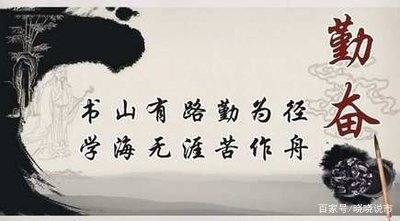 勤奋
书山有路勤为径
学海无涯苦作舟
百家号/晓晓说市